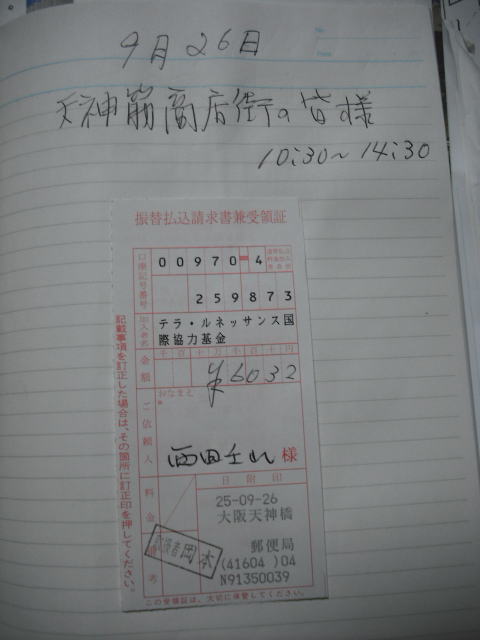 9月26日
天神筋商店街の皆様
10:30~14:30
振替払込請求書兼受領証
口座記号番号
00970-4
259873
加入者名
テラ・ルネッサンス国
際協力基金
金額
千百十万千百十円
¥6032
ご依頼人
おなまえ
西田
様
料金
日附印
25-09-26
大阪天神橋
郵便局
(41604 )04
N91350039
備考
取扱者 岡本
記載事項を訂正した場合は、その箇所に訂正印を押してください。
この受領証は、大切に保管してください。